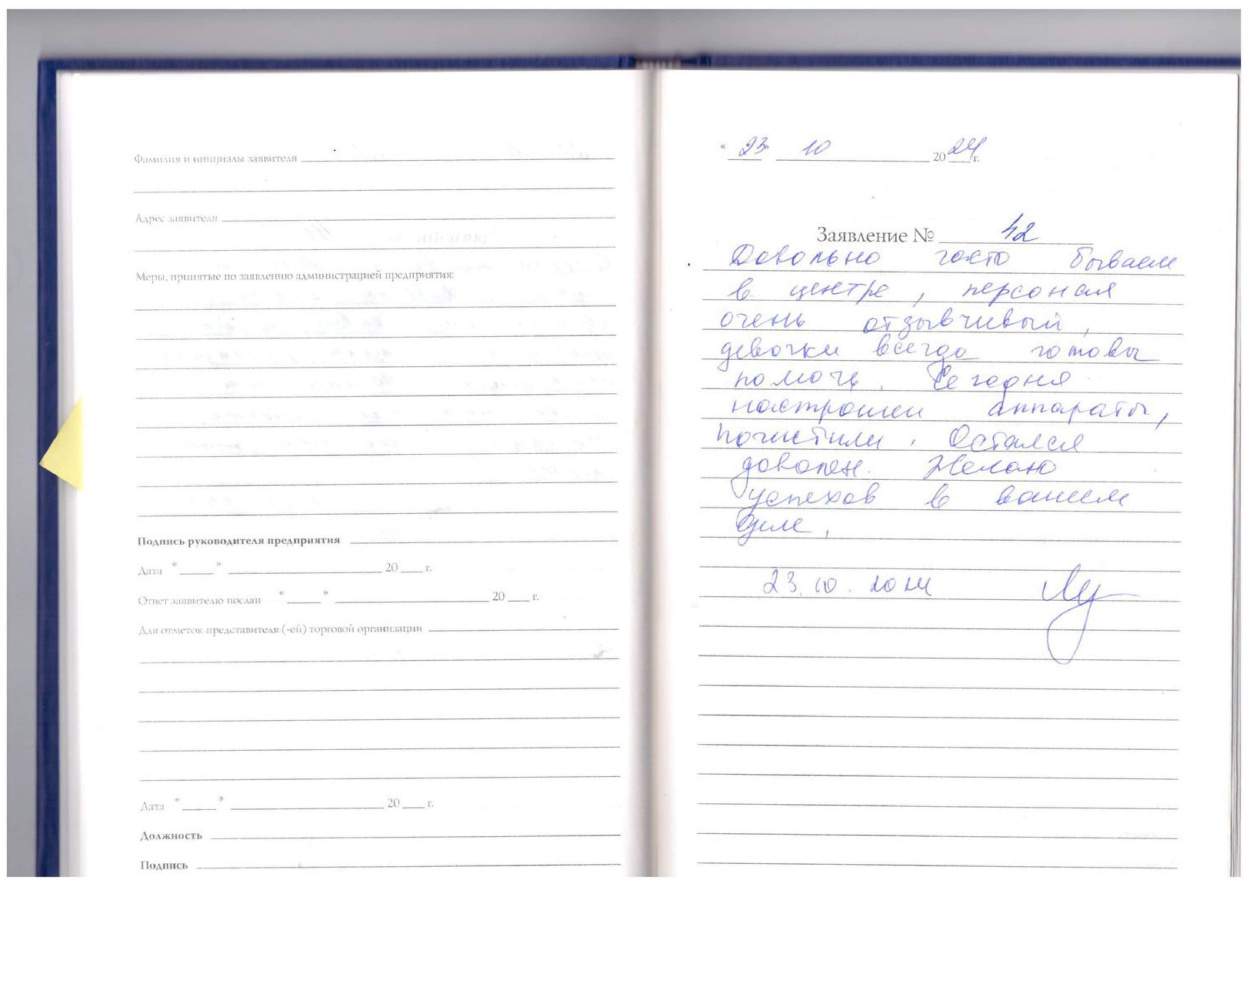 Фамилия и инициалы заявителя
Адрес заявителя
Меры, принятые по заявлению администрацией предприятия:
Подпись руководителя предприятия
Дата "____" ____ 20 ___ г.
Ответ заявителю послан "____" ____ 20 ___ г.
Для отметок представителя (-ей) торговой организации
Дата "____" ____ 20 ___ г.
Должность
Подпись
"23" 10 2024 г.
Заявление № 42
Довольно часто бываем
в центре, персонал
очень отзывчивый,
девочки всегда готовы
помочь. Сегодня
настроили аппараты,
почистили. Остался
доволен. Желаю
успехов в вашем
деле.
23.10.2024